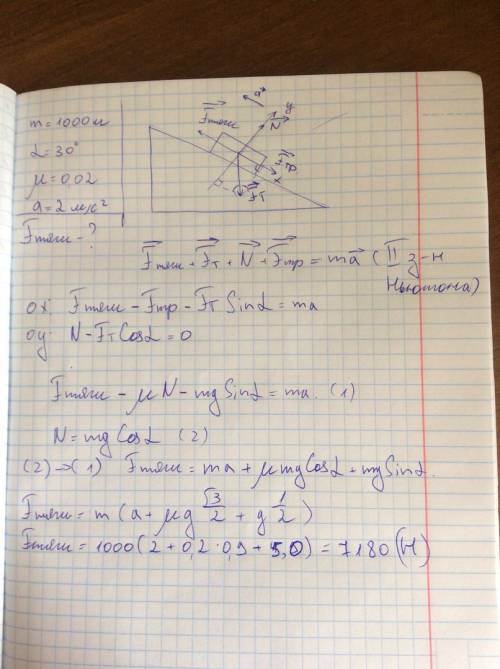 m = 1000 кг
α = 30°
μ = 0,02
a = 2 м/с²
Fтяги - ?
Fтяги
a
y
N
Fтр
x
Fт
Fтяги + Fт + N + Fтр = ma (II з-н
Ньютона)
ох: Fтяги - Fтр - Fт Sinα = ma
оу: N - Fт Cosα = 0
Fтяги - μN - mg Sinα = ma. (1)
N = mg Cosα (2)
(2) → (1) Fтяги = ma + μmg Cosα + mg Sinα.
Fтяги = m (a + μg √3/2 + g 1/2)
Fтяги = 1000(2 + 0,2·0,9 + 5,0) = 7180 (Н)